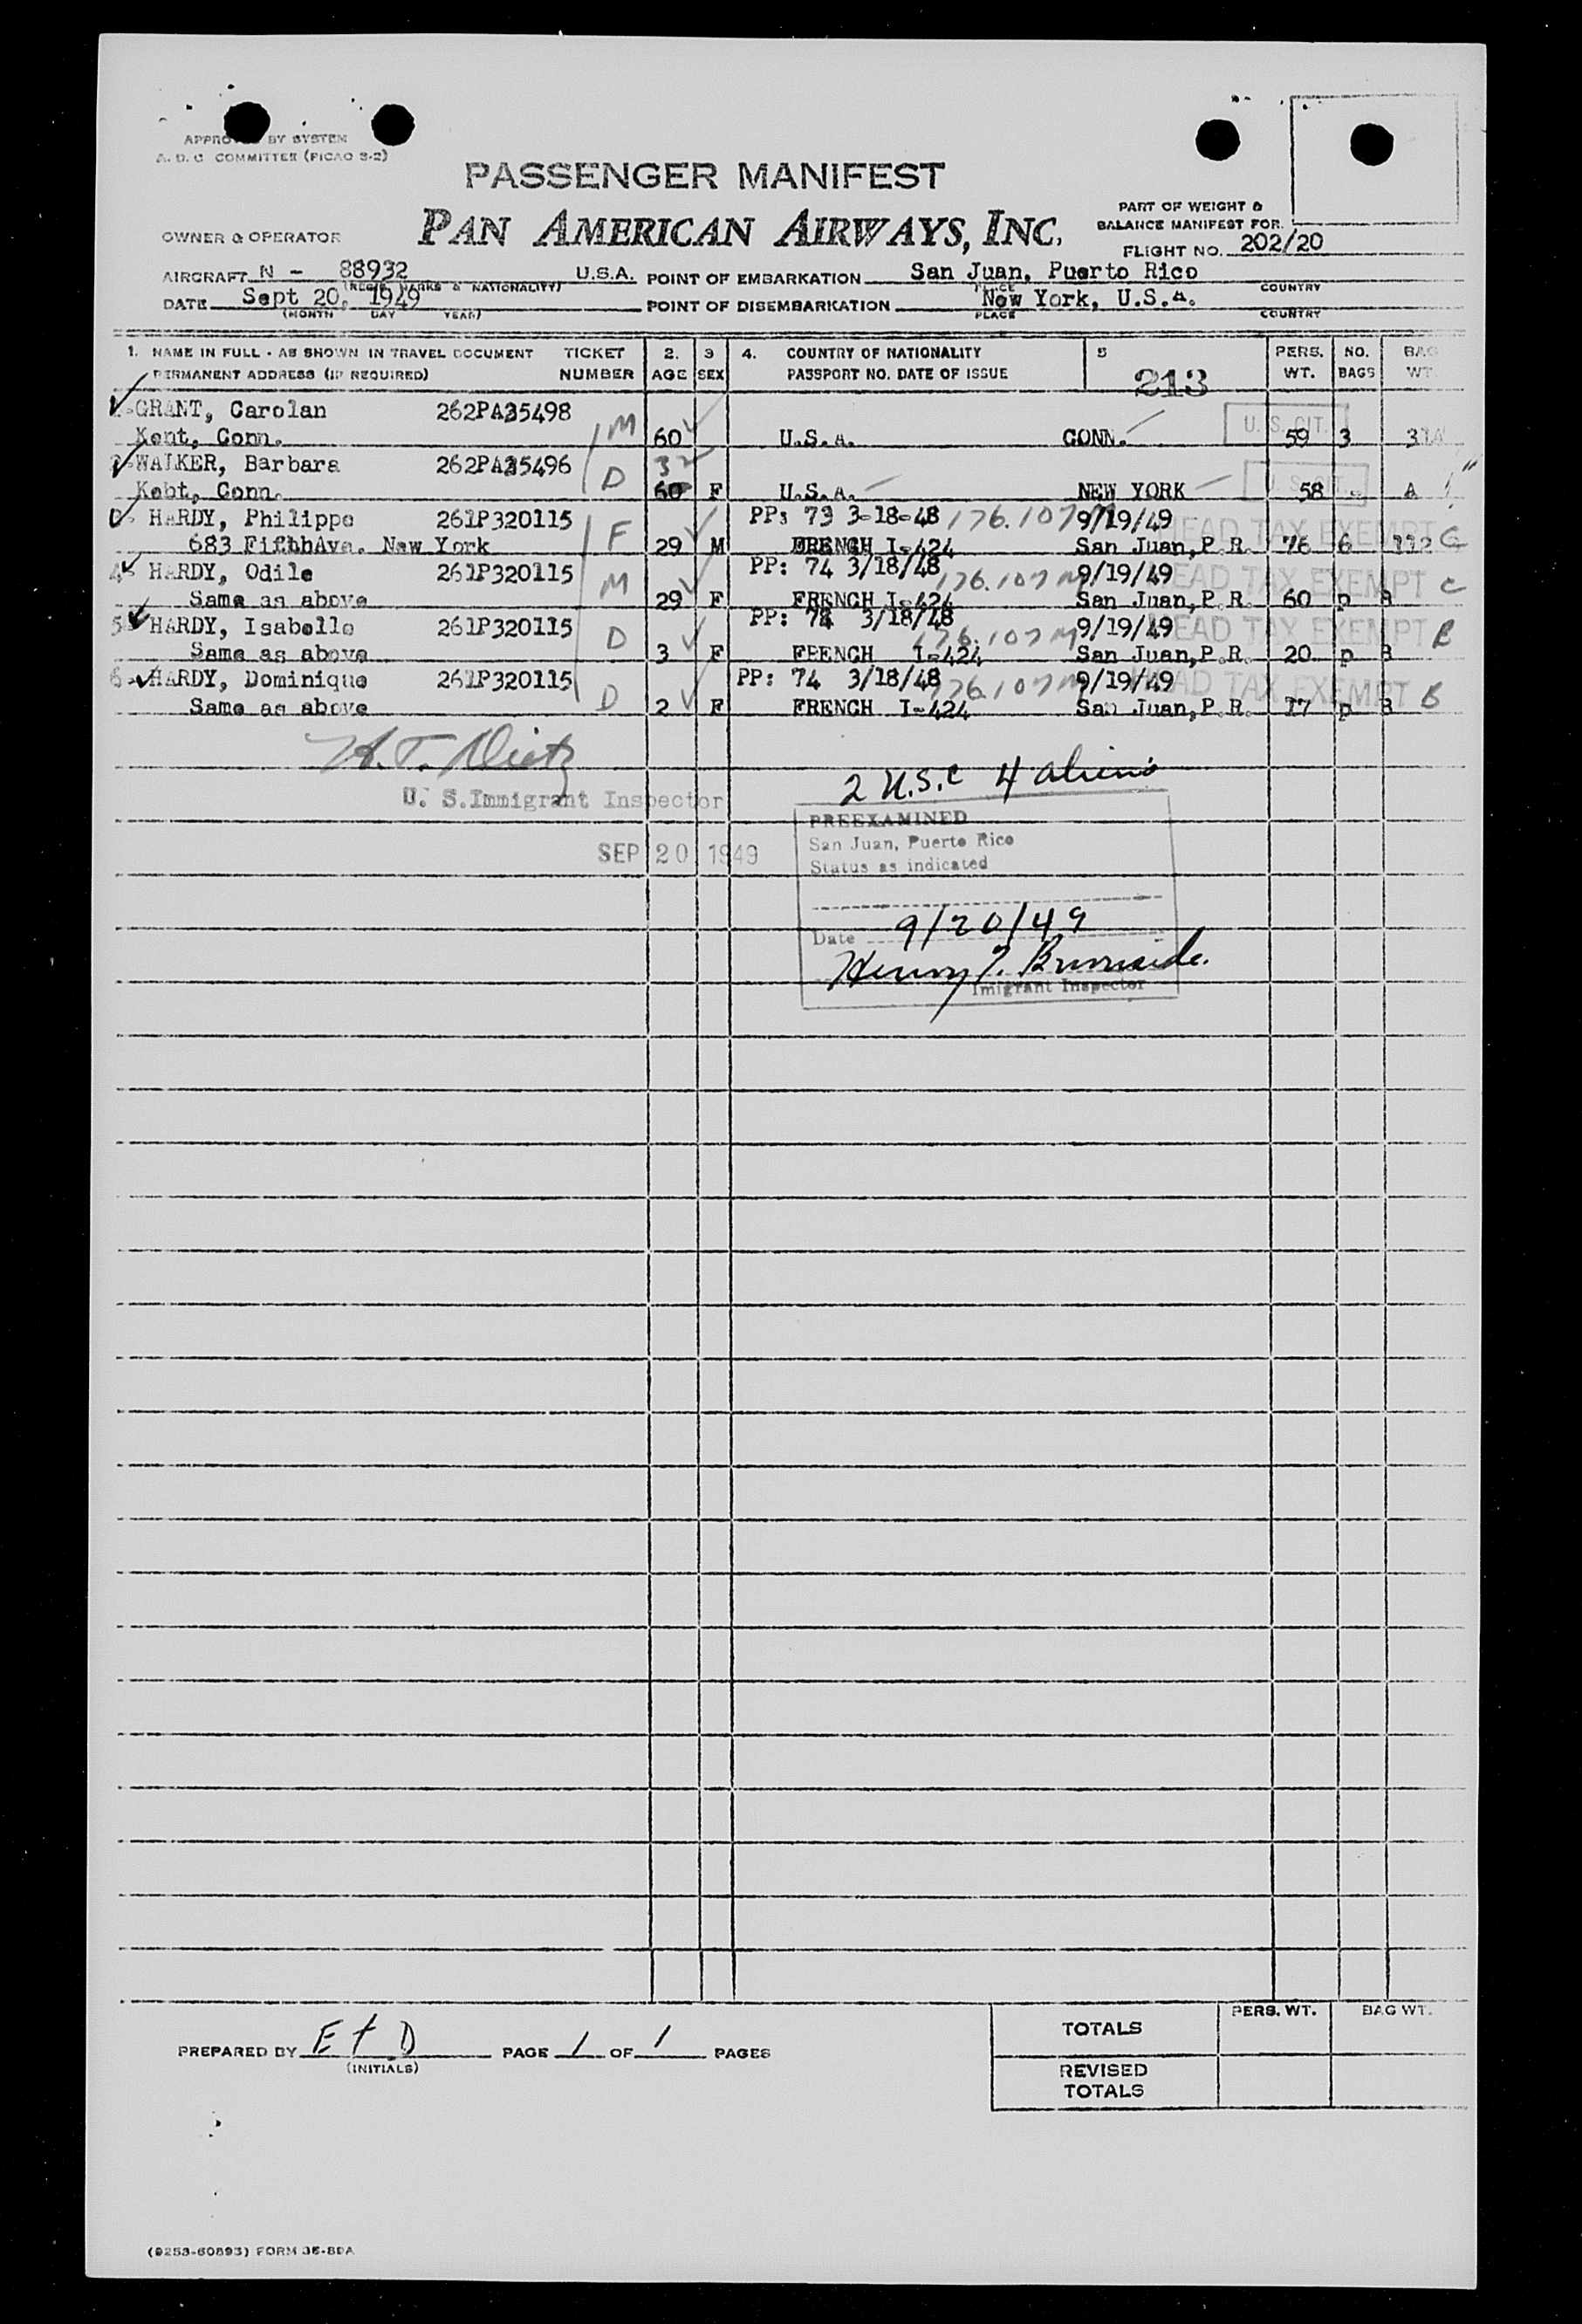 APPROVED BY SYSTEM
A. D. C COMMITTEE (PICAO S-2)
PASSENGER MANIFEST
PAN AMERICAN AIRWAYS, INC.
PART OF WEIGHT &
BALANCE MANIFEST FOR
OWNER & OPERATOR
FLIGHT NO. 202/20
AIRCRAFT N - 88932 U.S.A. POINT OF EMBARKATION San Juan, Puerto Rico
(REGIS. MARKS & NATIONALITY) PLACE COUNTRY
DATE Sept 20, 1949 POINT OF DISEMBARKATION New York, U.S.A.
(MONTH DAY YEAR) PLACE COUNTRY
1. NAME IN FULL - AS SHOWN IN TRAVEL DOCUMENT TICKET 2. 3 4. COUNTRY OF NATIONALITY 5 PERS. NO. BAG
PERMANENT ADDRESS (IF REQUIRED) NUMBER AGE SEX PASSPORT NO. DATE OF ISSUE 213 WT. BAGS WT
GRANT, Carolan 262PA35498 M U. S. CIT.
Kent, Conn. 60 U.S.A. CONN. 59 3
WALKER, Barbara 262PA35496 D 32 U. S. CIT.
Kebt, Conn. 60 F U.S.A. NEW YORK 58 A
HARDY, Philippe 261P320115 F PP: 73 3-18-48 176.107 M 9/19/49 HEAD TAX EXEMPT
683 FifthhAve. New York 29 M FRENCH I-424 San Juan,P.R. 76 6 112 C
4- HARDY, Odile 261P320115 M PP: 74 3/18/48 176.107 M 9/19/49 HEAD TAX EXEMPT C
Same as above 29 F FRENCH I-424 San Juan,P.R. 60 p
5- HARDY, Isabelle 261P320115 D PP: 74 3/18/48 176.107 M 9/19/49 HEAD TAX EXEMPT B
Same as above 3 F FRENCH I-424 San Juan,P.R. 20 p
6- HARDY, Dominique 261P320115 D PP: 74 3/18/48 176.107 M 9/19/49 HEAD TAX EXEMPT B
Same as above 2 F FRENCH I-424 San Juan,P.R. 17 p
H.T. Dietz
2 U.S.C 4 aliens
U. S. Immigrant Inspector
PREEXAMINED
San Juan, Puerto Rico
SEP 20 1949
Status as indicated
Date 9/20/49
Henry T. Burnside.
Imigrant Inspector
PERS. WT. BAG WT.
TOTALS
PREPARED BY E + D PAGE 1 OF 1 PAGES
(INITIALS)
REVISED
TOTALS
(9253-60893) FORM 35-88A